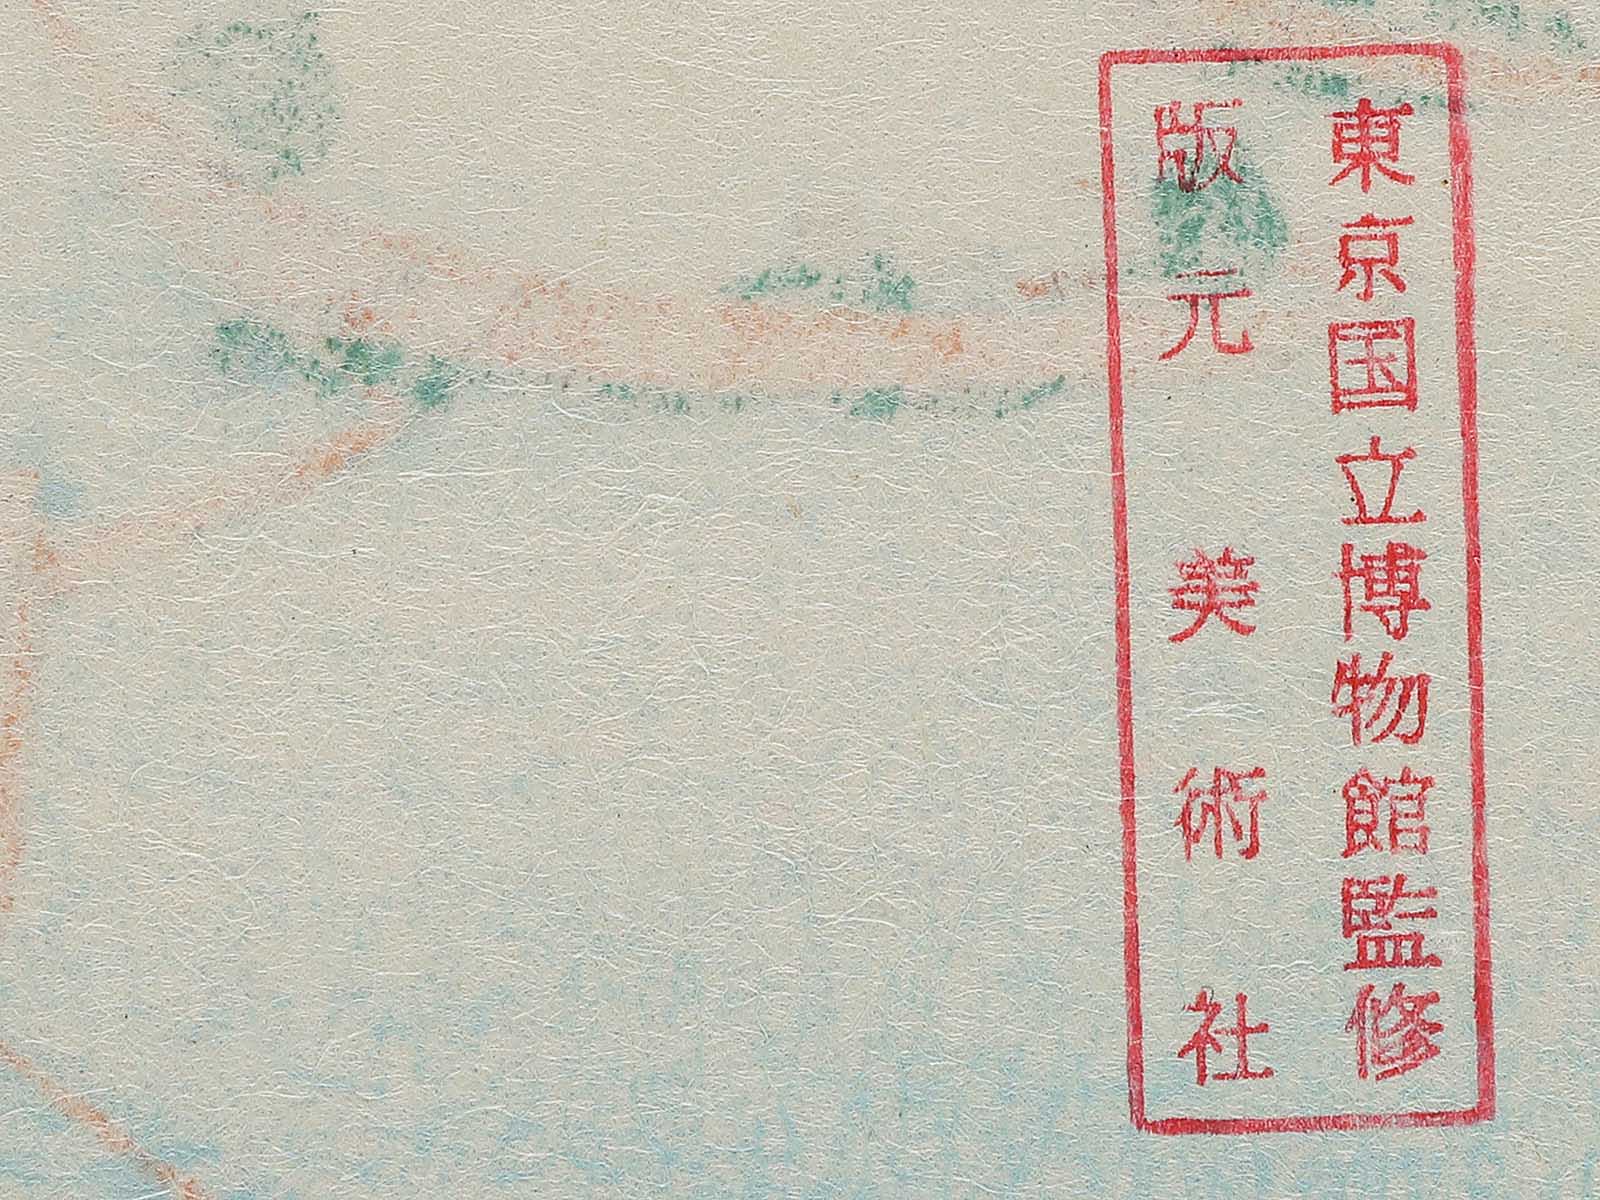 東京国立博物館監修
版元 美術社